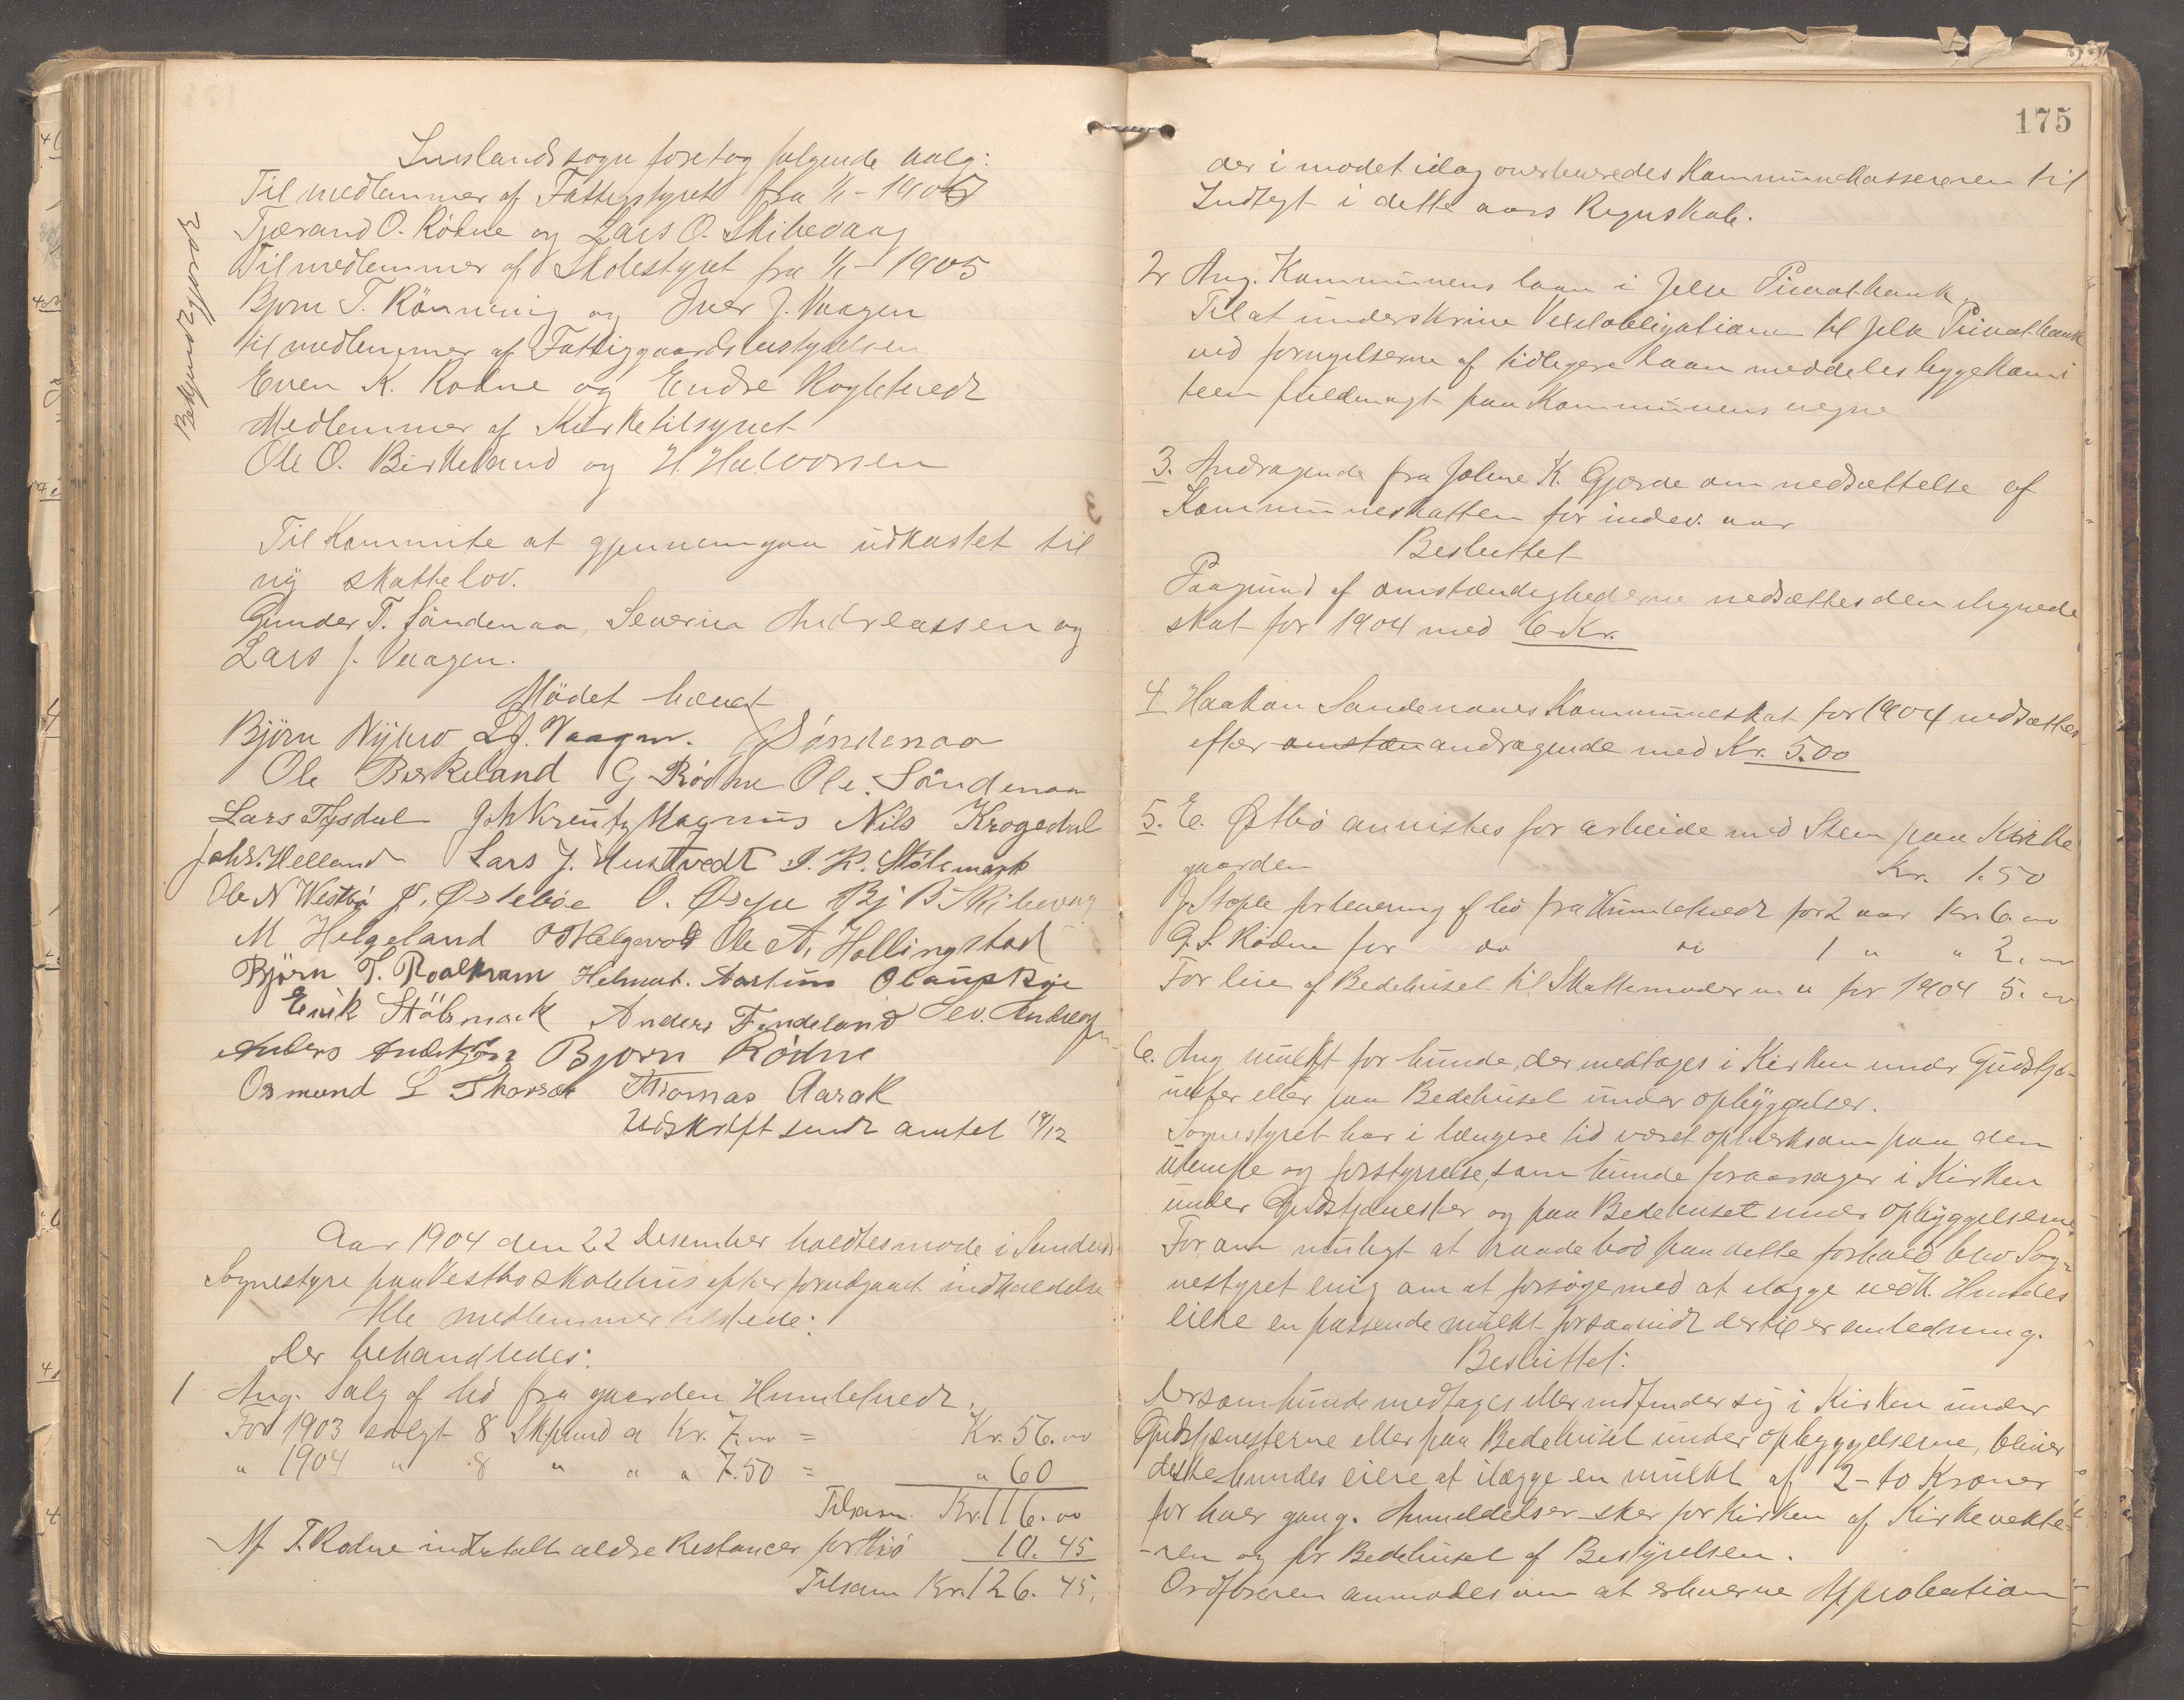 Imslands sogn foretog følgende valg:
Til medlemmer af Fattigstyret fra 1/1 - 1905
Tjærand O. Rødne og Lars O. Skibevaag
Til medlemmer af Skolestyret fra 1/1 - 1905
Bjørn T. Rönning og Iver J. Vaagen
til medlemmer af Fattiggaardsbestyrelsen
Even K. Rodne og Endre
Medlemmer af Kirketilsynet
Ole O. Birkeland og H Halvorsen
Bekjendtgjorde
Til Kommite at gjennemgaa udkastet til
ny skattelov.
Gunder T. Söndenaa, Severin Andreassen og
Lars J. Vaagen.
Mödet hævet
Björn Nybru L J. Vaagen. Söndenaa
Ole Birkeland G Rödne Ole Söndenaa
Lars Tysdal Magnus Nils Krogedal
Johs. Helland Lars J. Mustvedt I. K. Stölsmark
Ole N Westbö J. Östeböe O. Øvsje Bj B Skibevaag
M Helgeland Helgevold Ole A. Hollingstad
Björn T. Roalkvam Helmut. Aartun
Eirik Stölsmark Anders Findeland Sev. Andreassen
Anders Bjorn Rödne
Osmund L Thorsen Thomas Aarak
Udskrift sendt amtet 19/12
Aar 1904 den 22 Desember holdtes møde i
Sognestyre paa Vestbø skolehus efter forudgaaet indkaldelse
Alle medlemmer tilstede:
Der behandledes:
1 Ang. Salg af hö fra gaarden Humlekvedt.
For 1903 solgt 8 Skpund a Kr. 7.00 = Kr. 56.00
" 1904 " 8 " " " 7.50 = " 60
Tilsam. Kr. 116.00
Af T. Rødne indbetalt ældre Restancer for Hö 10.45
Tilsam Kr. 126.45,
175
der i mødet idag overleveredes Kommunekassereren til
Indtægt i dette aars Regnskab.
2 Ang. Kommunens laan i Jelse Privatbank.
Til at underskrive Vexelobligationen til Jelse Privatbank
ved fornyelserne af tidligere Laan meddeles byggekomi
teen fuldmagt paa Kommunens vegne
3. Andragende fra Johne K. Gjerde om nedsættelse af
Kommuneskatten for indev. aar
Besluttet
Paagrund af omstændighederne nedsættes den ilignede
skat for 1904 med 6 Kr.
4 Haakon Søndenaaes Kommuneskat for 1904 nedsættes
efter omstæn andragende med Kr. 5.00
5. E. Østbö anvistes for arbeide med Sten paa Kirke
gaarden Kr. 1.50
J. Stople for levering af hö fra Humlekvedt for 2 aar Kr. 6.00
G. S. Rødne for do do 1 " " 2.00
For leie af Bedehuset til Skattemøder m. v. for 1904 5.00
6. Ang mulkt for hunde, der medtages i Kirken under Gudstje-
nester eller paa Bedehuset under opbyggelser.
Sognestyret har i længere tid været opmerksom paa den
ulempe og forstyrrelse, som hunde foraarsager i Kirken
under Gudstjenester og paa Bedehuset under opbyggelserne
For om muligt at raade bod paa dette forhold blev Sog-
nestyret enig om at forsøge med at ilægge vedk. Hundes
eiere en passende mulkt forsaavidt dertil er anledning.
Besluttet:
Dersom hunde medtages eller indfinder sig i Kirken under
Gudstjenesterne eller paa Bedehuset under opbyggelserne, bliver
diske hundes eiere at ilægge en mulkt af 2-10 Kroner
for hver gang. Anmeldelser sker for Kirken af Kirkevekte-
-ren og for Bedehuset af Bestyrelsen.
Ordføreren anmodes om at erhverve Approbation